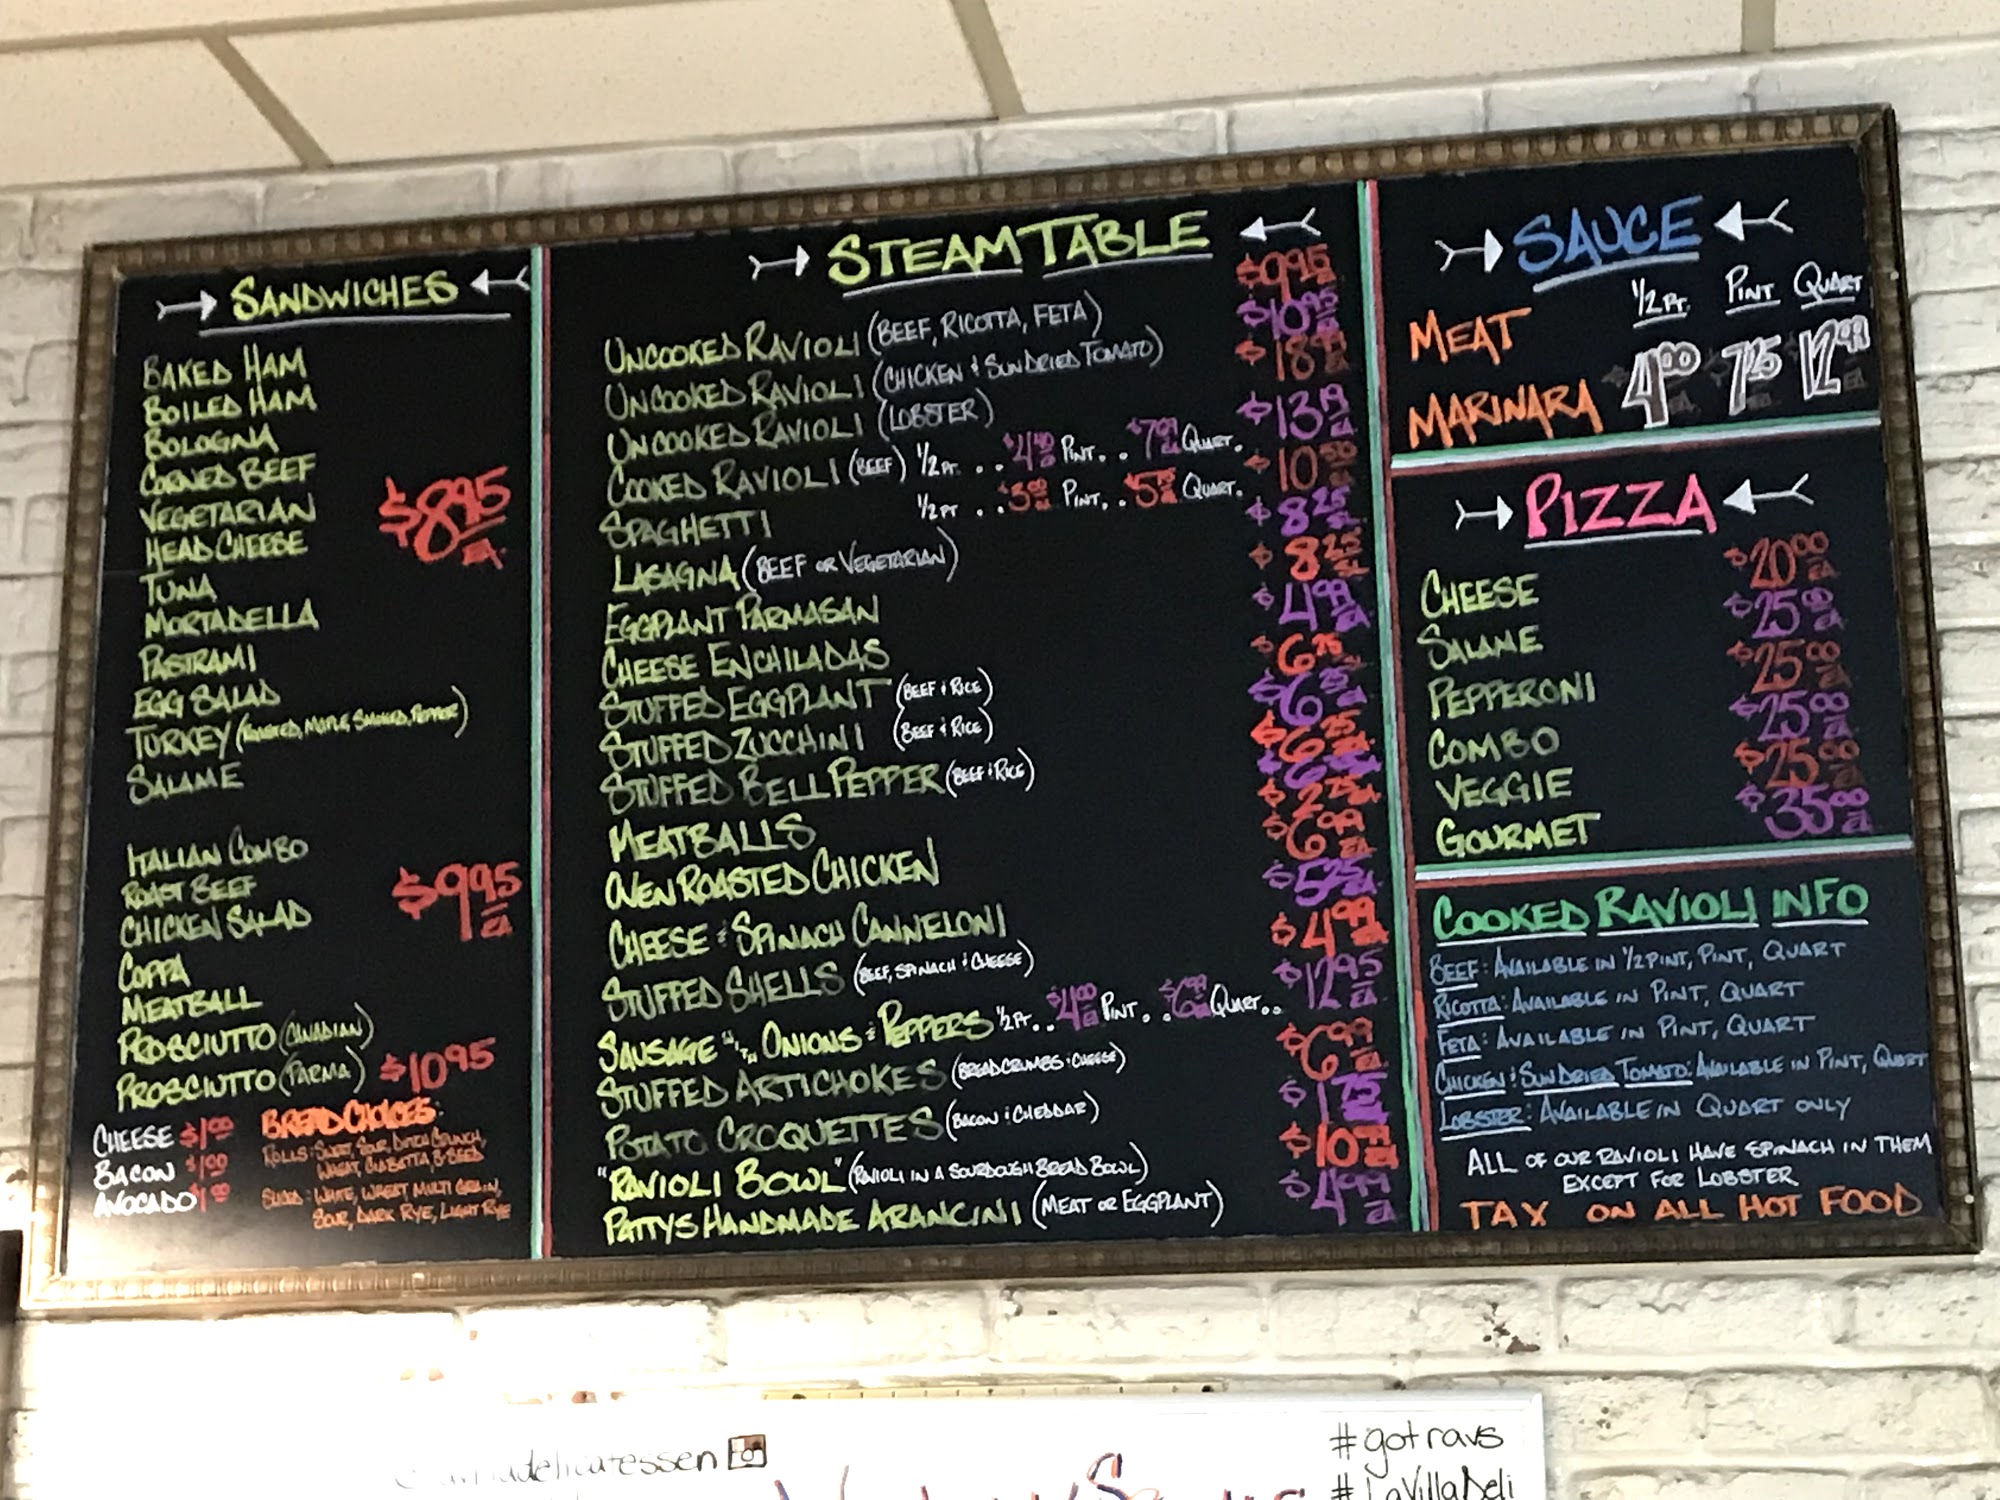 SANDWICHES
BAKED HAM
BOILED HAM
BOLOGNA
CORNED BEEF
VEGETARIAN
HEAD CHEESE
$8.95 EA.
TUNA
MORTADELLA
PASTRAMI
EGG SALAD
TURKEY (ROASTED, MAPLE, SMOKED, PEPPER)
SALAME
ITALIAN COMBO
ROAST BEEF
CHICKEN SALAD
$9.95 EA.
COPPA
MEATBALL
PROSCIUTTO (CANADIAN)
PROSCIUTTO (PARMA) $10.95
CHEESE $1.00
BACON $1.00
AVOCADO $1.00
BREAD CHOICES:
ROLLS: SWEET, SOUR, DUTCH CRUNCH,
WHEAT, CIABETTA, 8 SEED
SLICED: WHITE, WHEAT, MULTI GRAIN,
SOUR, DARK RYE, LIGHT RYE
STEAM TABLE
UNCOOKED RAVIOLI (BEEF, RICOTTA, FETA) $9.95 EA
UNCOOKED RAVIOLI (CHICKEN & SUNDRIED TOMATO) $10.95 EA
UNCOOKED RAVIOLI (LOBSTER) $18.99 EA
COOKED RAVIOLI (BEEF) 1/2 PT. .. $4.40 EA PINT. .. $7.09 EA QUART. $13.19 EA
SPAGHETTI 1/2 PT .. $3.00 EA PINT. .. $5.75 EA QUART. $10.50 EA
LASAGNA (BEEF OR VEGETARIAN) $8.25 SL
EGGPLANT PARMASAN $8.25 SL
CHEESE ENCHILADAS $4.99 EA
STUFFED EGGPLANT (BEEF & RICE) $6.75
STUFFED ZUCCHINI (BEEF & RICE) $6.25 EA
STUFFED BELL PEPPER (BEEF & RICE) $6.25
MEATBALLS $2.75 EA
OVEN ROASTED CHICKEN $6.99 EA
CHEESE & SPINACH CANNELONI $5.25 EA
STUFFED SHELLS (BEEF, SPINACH & CHEESE) $4.99 EA
SAUSAGE WITH ONIONS & PEPPERS 1/2 PT. .. $4.00 EA PINT. .. $6.99 EA QUART. .. $12.95 EA
STUFFED ARTICHOKES (BREADCRUMBS & CHEESE) $6.99 EA
POTATO CROQUETTES (BACON & CHEDDAR) $1.75 EA
"RAVIOLI BOWL" (RAVIOLI IN A SOURDOUGH BREAD BOWL) $10.99 EA
PATTYS HANDMADE ARANCINI (MEAT OR EGGPLANT) $4.99 EA
SAUCE
1/2 PT. PINT QUART
MEAT
MARINARA 4.00 EA. 7.25 EA. 12.99 EA
PIZZA
CHEESE $20.00 EA
SALAME $25.00 EA
PEPPERONI $25.00 EA
COMBO $25.00 EA
VEGGIE $25.00 EA
GOURMET $35.00 EA
COOKED RAVIOLI INFO
BEEF: AVAILABLE IN 1/2 PINT, PINT, QUART
RICOTTA: AVAILABLE IN PINT, QUART
FETA: AVAILABLE IN PINT, QUART
CHICKEN & SUNDRIED TOMATO: AVAILABLE IN PINT, QUART
LOBSTER: AVAILABLE IN QUART ONLY
ALL OF OUR RAVIOLI HAVE SPINACH IN THEM
EXCEPT FOR LOBSTER
TAX ON ALL HOT FOOD
#gotravs
#LaVillaDeli